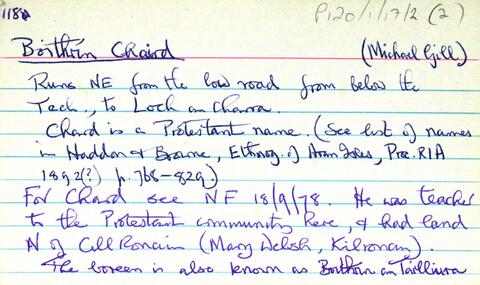 118a P120/1/17/2 (2)
Bóithrín Chaird (Michael Gill)
Runs NE from the low road from below the
Tech., to Loch an Charra.
Chard is a Protestant name. (See list of names
in Haddon & Browne, Ethnog. of Aran Isles, Proc. RIA
1892(?) p. 768-829)
For Chard see NF 18/9/78. He was teacher
to the Protestant community here, & had land
N of Cill Rónáin (Mary Welsh, Kilronan).
The boreen is also known as Bóithrín an Táilliúra